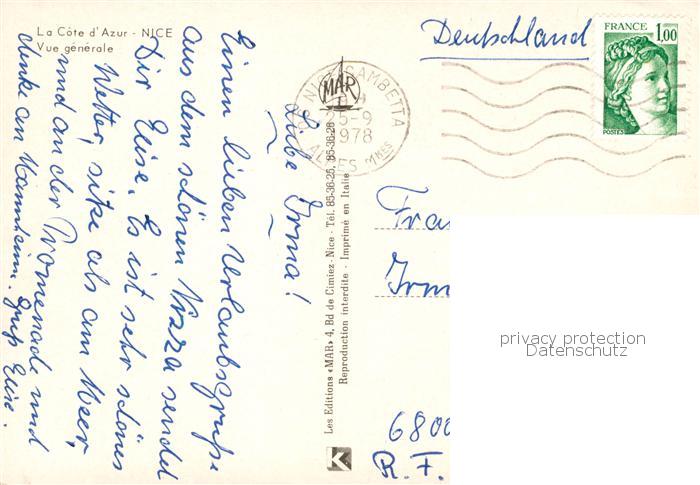 La Côte d'Azur - NICE
Vue générale
Liebe Irma!
Einen lieben Urlaubsgruß
aus dem schönen Nizza sendet
Dir Elise. Es ist sehr schönes
Wetter, sitze als am Meer,
und an der Promenade und
denke an Mannheim. Gruß Elise.
MAR
NICE GAMBETTA
25-9
1978
ALPES Mmes
Les Editions «MAR» 4, Bd de Cimiez - Nice - Tél. 85-36-25, 85-36-26
Reproduction interdite - Imprimé en Italie
K
Deutschland
FRANCE
1,00
POSTES
Frau
Irm
6800
R. F.
privacy protection
Datenschutz